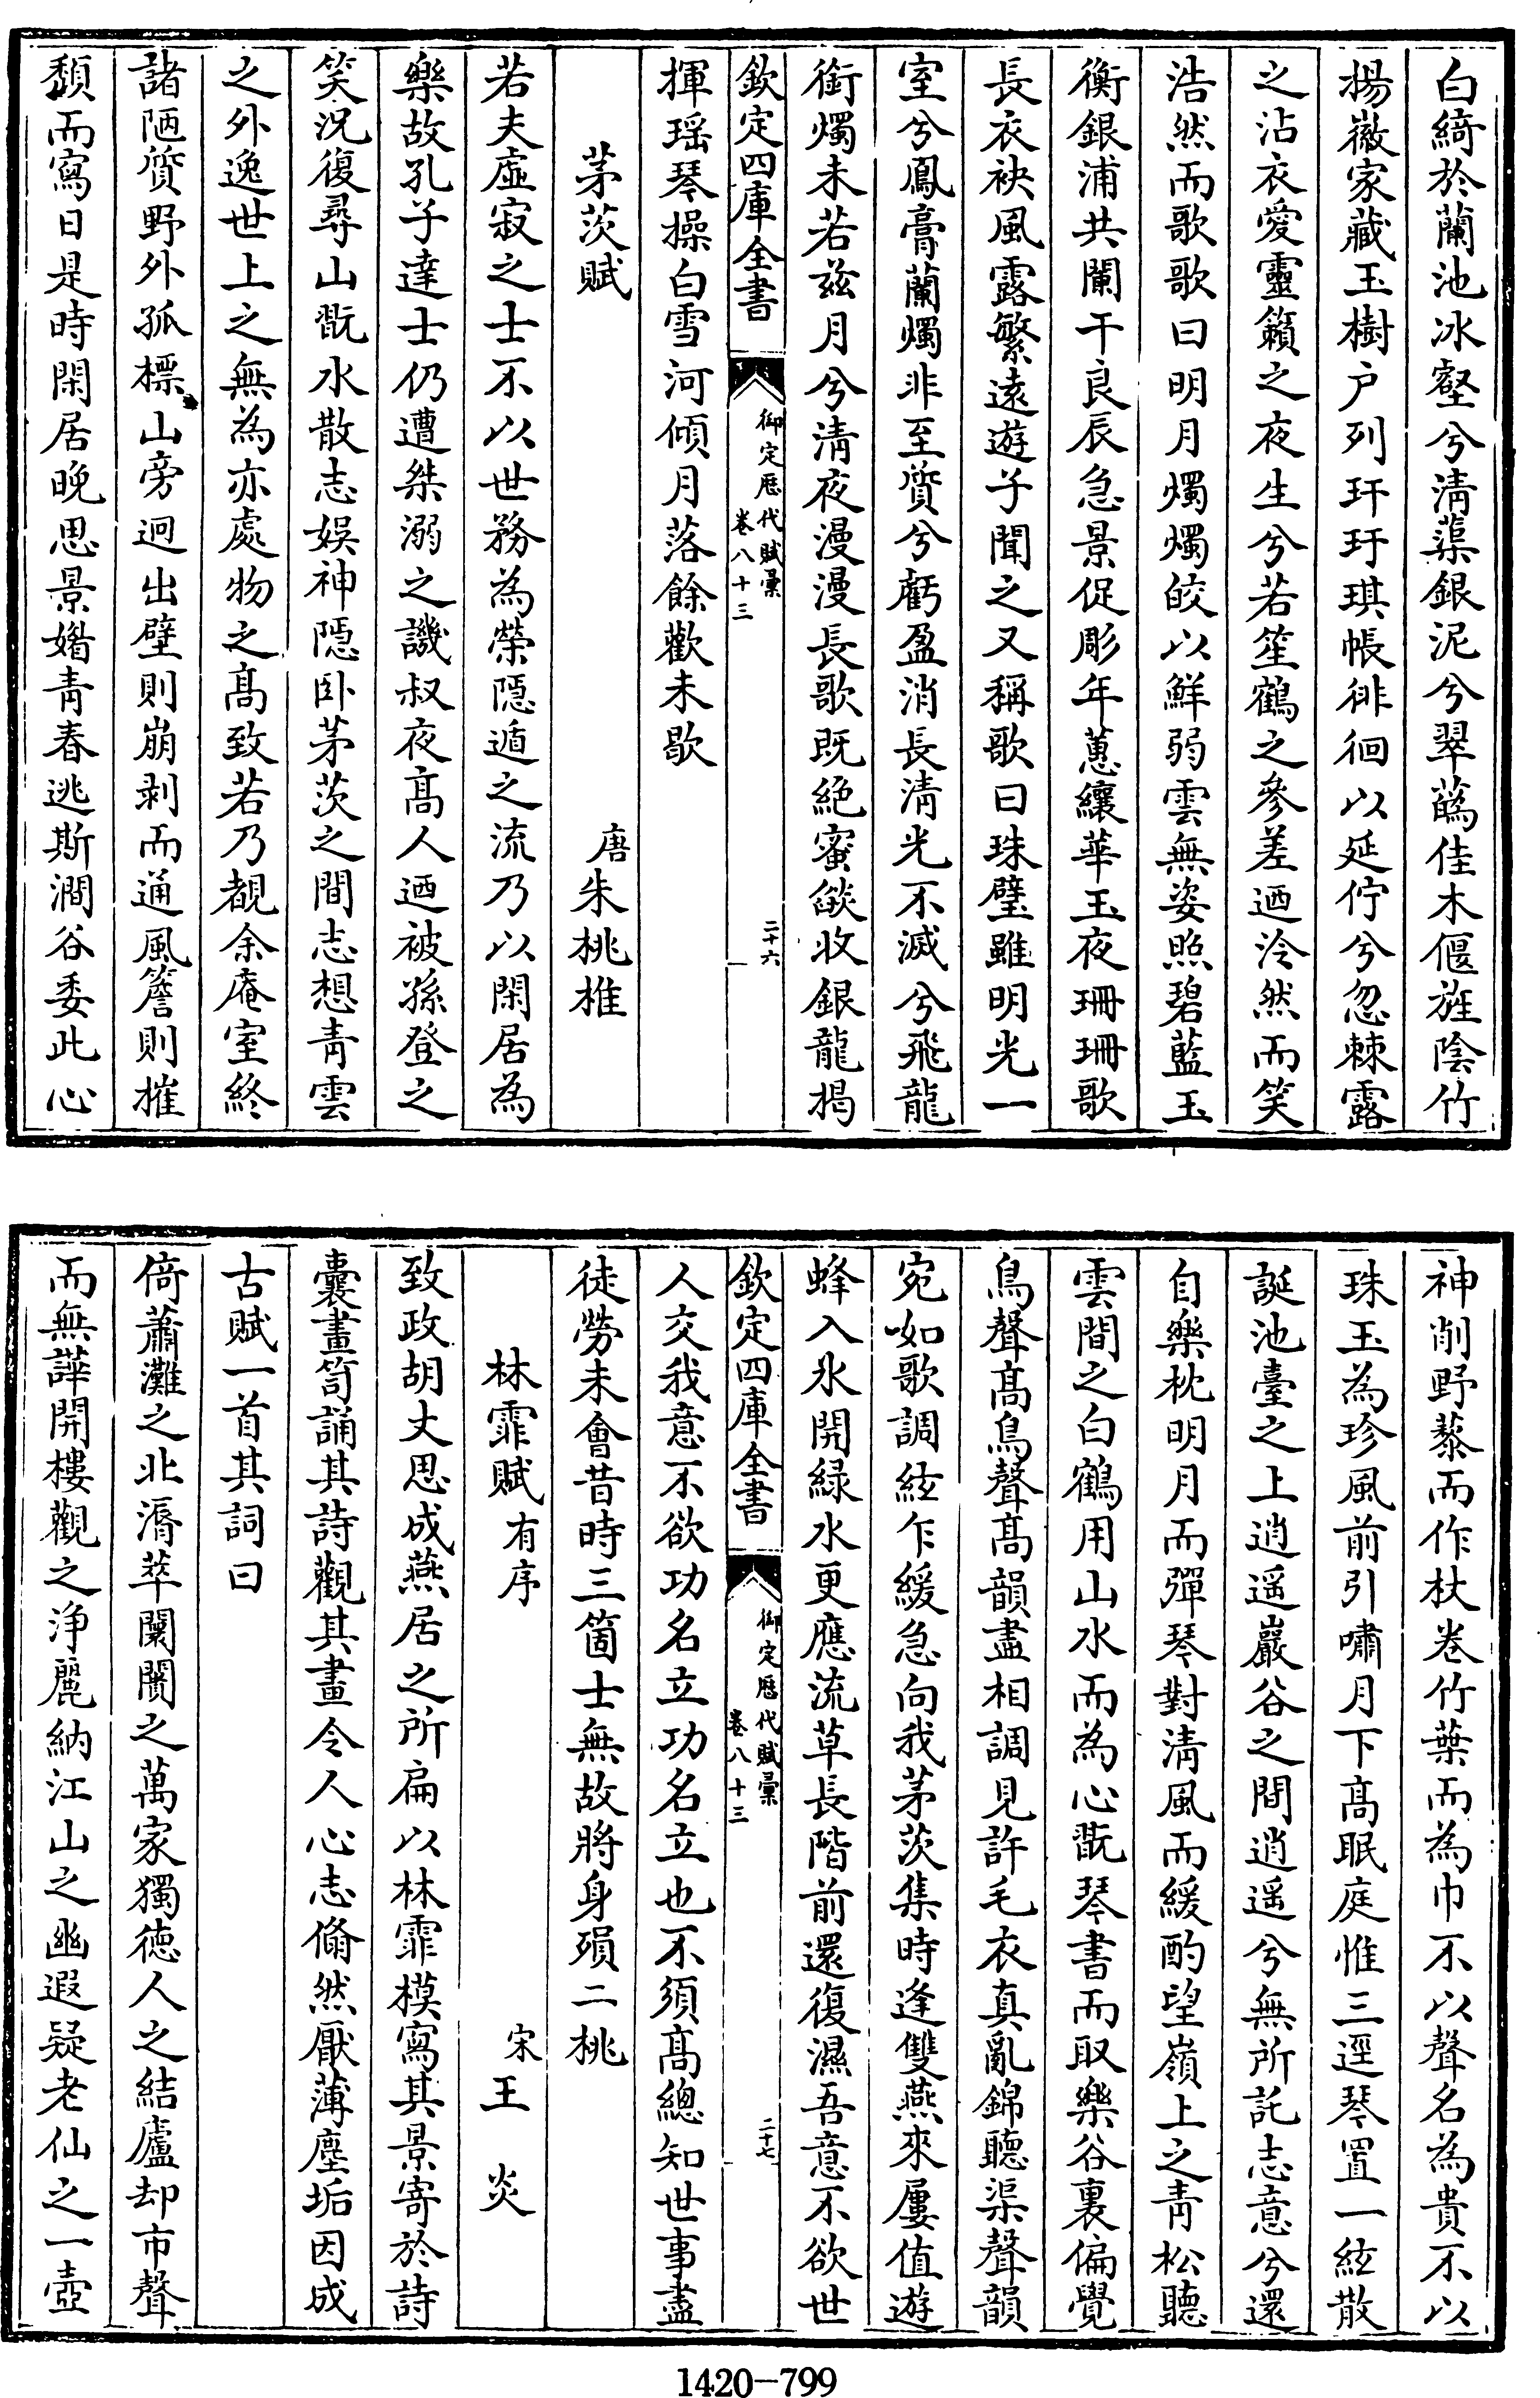 白綺於蘭池冰壑兮清蕖銀泥兮翠蔿佳木偃旌陰竹
揚徽家藏玉樹户列玕玗琪帳徘徊以延佇兮忽棘露
之沾衣愛靈籟之夜生兮若笙鶴之參差迺泠然而笑
浩然而歌歌曰明月燭燭皎以鮮弱雲無姿照碧藍玉
衡銀浦共闌干良辰急景促彫年蕙纕華玉夜珊珊歌
長衣袂風露繁遠遊子聞之又稱歌曰珠璧雖明光一
室兮鳳膏蘭燭非至質兮虧盈消長清光不滅兮飛龍
銜燭未若兹月兮清夜漫漫長歌既絶蜜燄收銀龍揭
欽定四庫全書
御定歷代賦彙
卷八十三
二十六
揮瑶琴操白雪河傾月落餘歡未歇
茅茨賦
唐朱桃椎
若夫虛寂之士不以世務為榮隱遁之流乃以閑居為
樂故孔子達士仍遭桀溺之譏叔夜髙人迺被孫登之
笑況復尋山翫水散志娛神隱卧茅茨之間志想青雲
之外逸世上之無為亦處物之髙致若乃覩余庵室終
諸陋質野外孤標山旁迥出壁則崩剥而通風簷則摧
頽而寫日是時閑居晚思景媘青春逃斯澗谷委此心
神削野藜而作杖卷竹葉而為巾不以聲名為貴不以
珠玉為珍風前引嘯月下髙眠庭惟三逕琴置一絃散
誕池臺之上逍遥巖谷之間逍遥兮無所託志意兮還
自樂枕明月而彈琴對清風而緩酌望嶺上之青松聽
雲間之白鶴用山水而為心翫琴書而取樂谷裏偏覺
鳥聲髙鳥聲髙韻盡相調見許毛衣真亂錦聽渠聲韻
宛如歌調絃乍緩急向我茅茨集時逢雙燕來屢值遊
蜂入氷開緑水更應流草長階前還復濕吾意不欲世
欽定四庫全書
御定歷代賦彙
卷八十三
二十七
人交我意不欲功名立功名立也不須髙總知世事盡
徒勞未會昔時三箇士無故將身殞二桃
林霏賦有序
宋王炎
致政胡丈思成燕居之所扁以林霏模寫其景寄於詩
囊畫笥誦其詩觀其畫令人心志翛然厭薄塵垢因成
古賦一首其詞曰
倚蕭灘之北漘萃闤闠之萬家獨徳人之結廬却市聲
而無譁開樓觀之浄麗納江山之幽遐疑老仙之一壺
1420-799